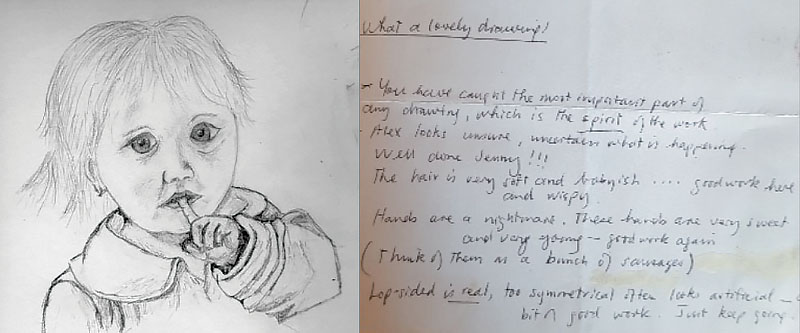 What a lovely drawing!
– You have caught the most important part of
any drawing, which is the spirit of the work
Alex looks unsure, uncertain what is happening.
Well done Jenny!!!
The hair is very soft and babyish .... good work here
and wispy.
Hands are a nightmare. These hands are very sweet
and very young – good work again
(Think of them as a bunch of sausages)
Lop-sided is real, too symmetrical often looks artificial –
bit of good work. Just keep going.